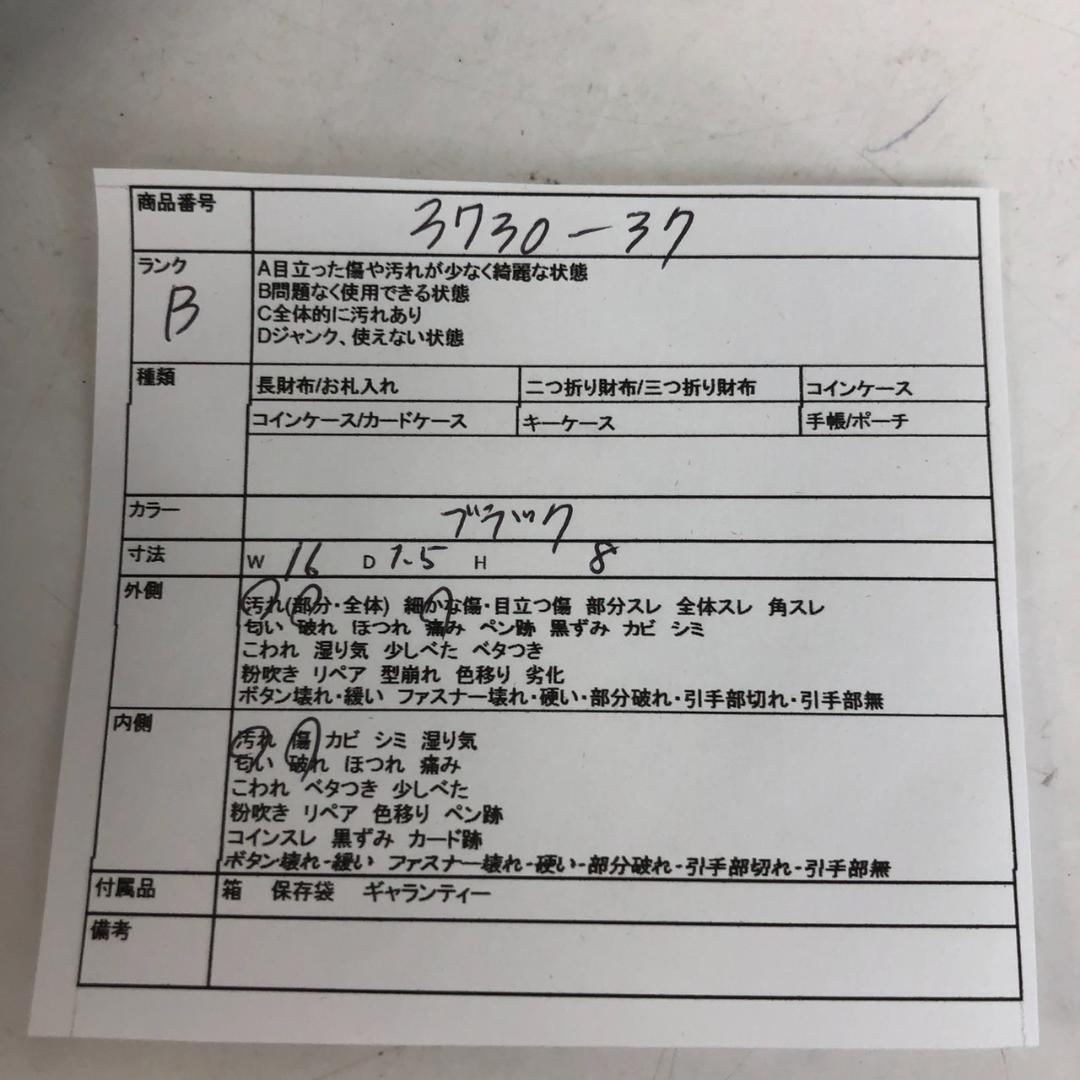 商品番号 3730-37
ランク B
A目立った傷や汚れが少なく綺麗な状態
B問題なく使用できる状態
C全体的に汚れあり
Dジャンク、使えない状態
種類 長財布/お札入れ 二つ折り財布/三つ折り財布 コインケース
コインケース/カードケース キーケース 手帳/ポーチ
カラー ブラック
寸法 W 16 D 1.5 H 8
外側 汚れ(部分・全体) 細かな傷・目立つ傷 部分スレ 全体スレ 角スレ
匂い 破れ ほつれ 痛み ペン跡 黒ずみ カビ シミ
こわれ 湿り気 少しべた ベタつき
粉吹き リペア 型崩れ 色移り 劣化
ボタン壊れ・緩い ファスナー壊れ・硬い・部分破れ・引手部切れ・引手部無
内側 汚れ 傷 カビ シミ 湿り気
匂い 破れ ほつれ 痛み
こわれ ベタつき 少しべた
粉吹き リペア 色移り ペン跡
コインスレ 黒ずみ カード跡
ボタン壊れ・緩い ファスナー壊れ・硬い・部分破れ・引手部切れ・引手部無
付属品 箱 保存袋 ギャランティー
備考